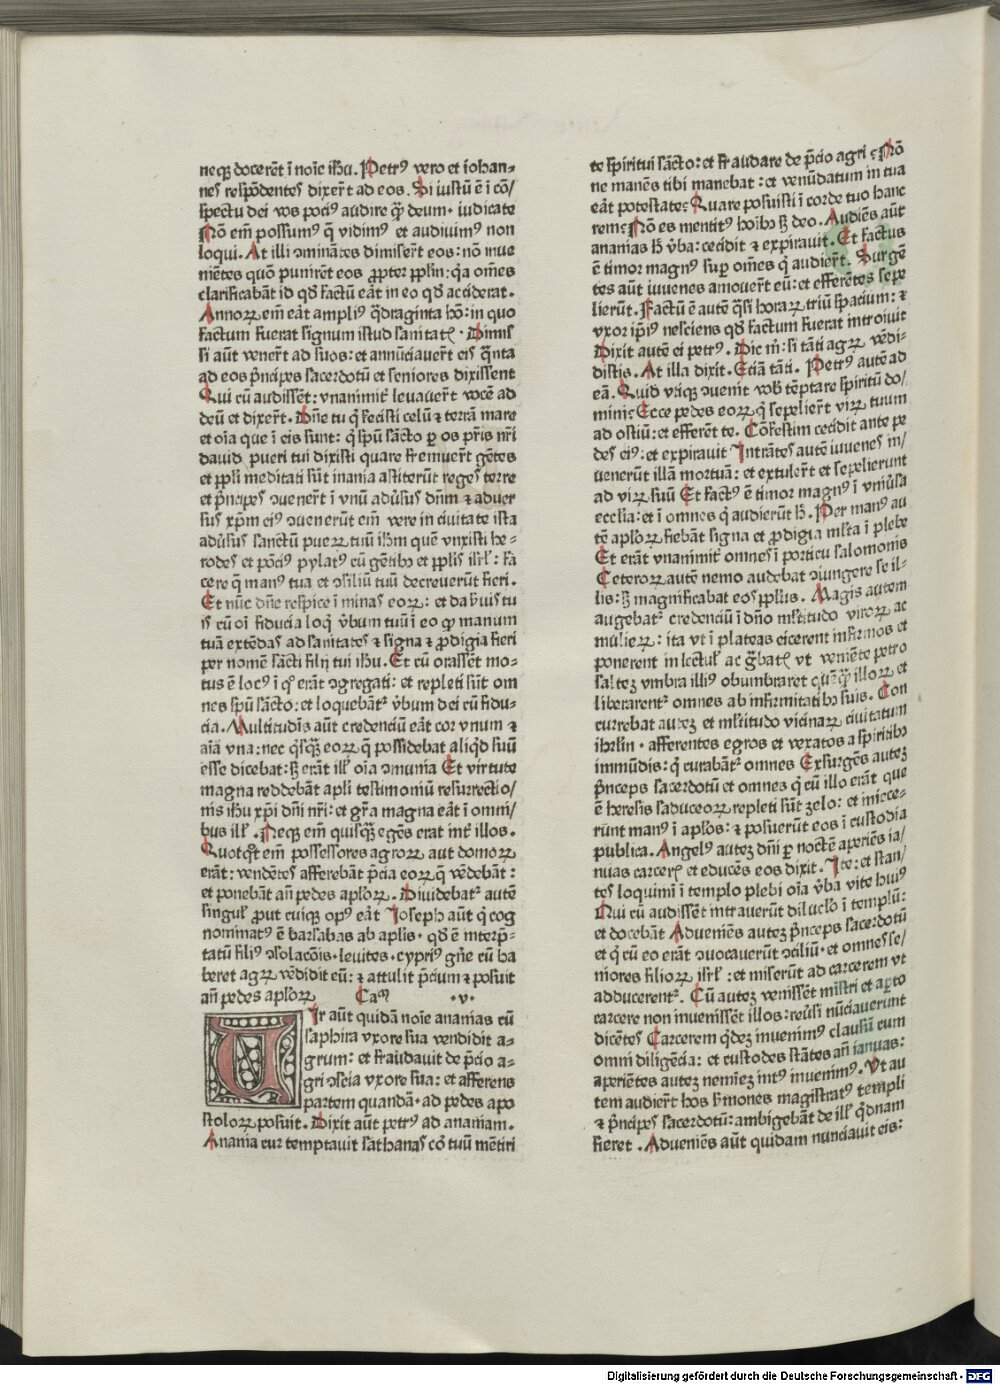 neqꝫ docerēt ī noīe ihū. Petrꝰ vero et iohan⸗
nes respōdentes dixerūt ad eos. Si iustū ē ī cō/
spectu dei vos pociꝰ audire q̄ꝫ deum· iudicate
Nō em̄ possumꝰ q̄ vidimꝰ et audiuimꝰ non
loqui. At illi ↄminātes dimiserūt eos: nō inue
niētes quō punirēt eos ꝓpter ꝓplm: qa om̄es
clarificabāt id qd factū eāt in eo qd acciderat.
Annoꝝ em̄ eāt ampliꝰ q̄draginta hō: in quo
factum fuerat signum istud sanitatꝭ. Dimis
si aūt venerūt ad suos: et annūciauerūt eis q̄nta
ad eos p̄ncipes sacerdotū et seniores dixissent
Qui cū audissēt: vnanimit̄ leuauerūt vocē ad
deū et dixerūt. Dn̄e tu q̄ fecisti celū ⁊ terrā mare
et oīa que ī eis sunt: q̄ spū sācto ꝑ os pr̄is nr̄i
dauid pueri tui dixisti quare fremuerūt gētes
et ꝓpli meditati sūt inania astiterūt reges terre
et p̄ncipes ↄuenerūt ī vnū aduꝰsus dn̄m ⁊ aduer
sus xp̄m eiꝰ ↄuenerūt em̄ vere in ciuitate ista
aduꝰsus sanctū pueꝝ tuū ihm quē vnxisti he⸗
rodes et pōciꝰ pylatꝰ cū gētibꝰ et ꝓplis isrl̄: fa
cere q̄ manꝰ tua et ↄsiliū tuū decreuerūt fieri.
Et nūc dn̄e respice ī minas eoꝝ: et da ẜuis tu
is cū oī fiducia loqi v̄bum tuū ī eo qꝫ manum
tuā extēdas ad sanitates ⁊ signa ⁊ ꝓdigia fieri
per nomē sācti filij tui ihū. Et cū orassēt mo⸗
tus ē locꝰ ī qo erāt ↄgregati: et repleti sūt om
nes spū sācto: et loquebāt᷑ v̄bum dei cū fidu⸗
cia. Multitudīs aūt credenciū eāt cor vnum ⁊
aīa vna: nec qsq̄ꝫ eoꝝ q̄ possidebat aliqd suū
esse dicebat: sꝫ erāt ill̄ oīa ↄmunia Et virtute
magna reddebāt apli testimoniū resurrectio/
nis ihū xp̄i dn̄i nr̄i: et gr̄a magna eāt ī omni/
bus ill̄. Neqꝫ em̄ quisq̄ꝫ egēs erat int̄ illos.
Quotqt em̄ possessores agroꝝ aut domoꝝ
erāt: vendētes afferebāt p̄cia eoꝝ q̄ vēdebāt:
et ponebāt an̄ pedes aploꝝ. Diuidebat᷑ autē
singul̄ ꝓut cuiqꝫ opꝰ eāt Ioseph aūt q̄ cog
nominatꝰ ē barsabas ab aplis· qd ē interp̄⸗
tatū filiꝰ ↄsolacōis· leuites· cypriꝰ gn̄e cū ha
beret agꝝ vēdidit eū: ⁊ attulit p̄cium ⁊ posuit
an̄ pedes aploꝝ Cam ·v·
Uir aūt quidā noīe ananias cū
saphira vxore sua vendidit a⸗
grum: et fraudauit de p̄cio a⸗
gri ↄscia vxore sua: et afferens
partem quandā· ad pedes apo
stoloꝝ posuit. Dixit aūt petrꝰ ad ananiam.
Anania cur temptauit sathanas cō tuū mētiri
te spiritui sācto: et fraudare de p̄cio agri? Nō
ne manēs tibi manebat: et venūdatum in tua
eāt potestate? Quare posuisti ī corde tuo hanc
rem? Nō es mentitꝰ hoībꝰ sꝫ deo. Audiēs aūt
ananias hꝫ v̄ba: cecidit ⁊ expirauit. Et factus
ē timor magnꝰ suꝑ om̄es q̄ audierūt. Surgē
tes aūt iuuenes amouerūt eū: et efferētes sepe
lierūt. Factū ē autē q̄si horaꝝ triū spacium: ⁊
vxor ipīꝰ nesciens qd factum fuerat introiuit
Dixit autē ei petrꝰ. Dic m̄: si tāti agꝝ vēdi⸗
distis. At illa dixit. Etiā tāti. Petrꝰ autē ad
eā. Quid vtiqꝫ ↄuenit vob̄ tēptare spiritū do/
mini? Ecce pedes eoꝝ q̄ sepelierūt viꝝ tuum
ad ostiū: et efferēt te. Cōfestim cecidit ante pe
des eiꝰ: et expirauit Intrātes autē iuuenes in/
uenerūt illā mortuā: et extulerūt et sepelierunt
ad viꝝ suū Et factꝰ ē timor magnꝰ ī vniuꝰsa
ecclia: et ī omnes q̄ audierūt hꝫ. Per manꝰ au
tē aploꝝ fiebāt signa et ꝓdigia ml̄ta ī plebe
Et erāt vnanimit̄ omnes ī porticu salomonis
Ceteroꝝ autē nemo audebat ↄiungere se il⸗
lis: sꝫ magnificabat eos ꝓplus. Magis autem
augebat᷑ credenciū ī dn̄o ml̄titudo viroꝝ ac
mulieꝝ: ita vt ī plateas eicerent infirmos et
ponerent in lectul̄ ac ḡbatꝭ vt veniēte petro
saltꝫ vmbra illiꝰ obumbraret quēq̄ꝫ illoꝝ et
liberarent᷑ omnes ab infirmitatibꝰ suis. Con
currebat autꝫ et ml̄titudo vicinaꝝ ciuitatum
ihrlm· afferentes egros et vexatos a spiritibꝰ
immūdis: q̄ curabāt᷑ omnes Exsurgēs autꝫ
p̄nceps sacerdotū et omnes q̄ cū illo erāt que
ē heresis saduceoꝝ repleti sūt zelo: et miece⸗
rūnt manꝰ ī aplos: ⁊ posuerūt eos ī custodia
publica. Angelꝰ autꝫ dn̄i ꝑ noctē aperiēs ia/
nuas carcerꝭ et educēs eos dixit. Ite: et stan/
tes loquimī ī templo plebi oīa v̄ba vite huiꝰ
Qui cū audissēt intrauerūt diluclo ī templū:
et docebāt Adueniēs autꝫ p̄nceps sacerdotū
et q̄ cū eo erāt ↄuocauerūt ↄciliū· et omnes se/
niores filioꝝ isrl̄: et miserūt ad carcerem vt
adducerent᷑. Cū autꝫ venissēt mīstri et aꝑto
carcere non inuenissēt illos: reuꝰsi nūciauerunt
dicētes Carcerem qdꝫ inuenimꝰ clausū cum
omni diligēcia: et custodes stātes an̄ ianuas:
aperiētes autꝫ neminē intꝰ inuenimꝰ. Vt au
tem audierūt hos ẜmones magistratꝰ templi
⁊ p̄ncipes sacerdotū: ambigebāt de ill̄ qdnam
fieret. Adueniēs aūt quidam nunciauit eis:
Digitalisierung gefördert durch die Deutsche Forschungsgemeinschaft - DFG